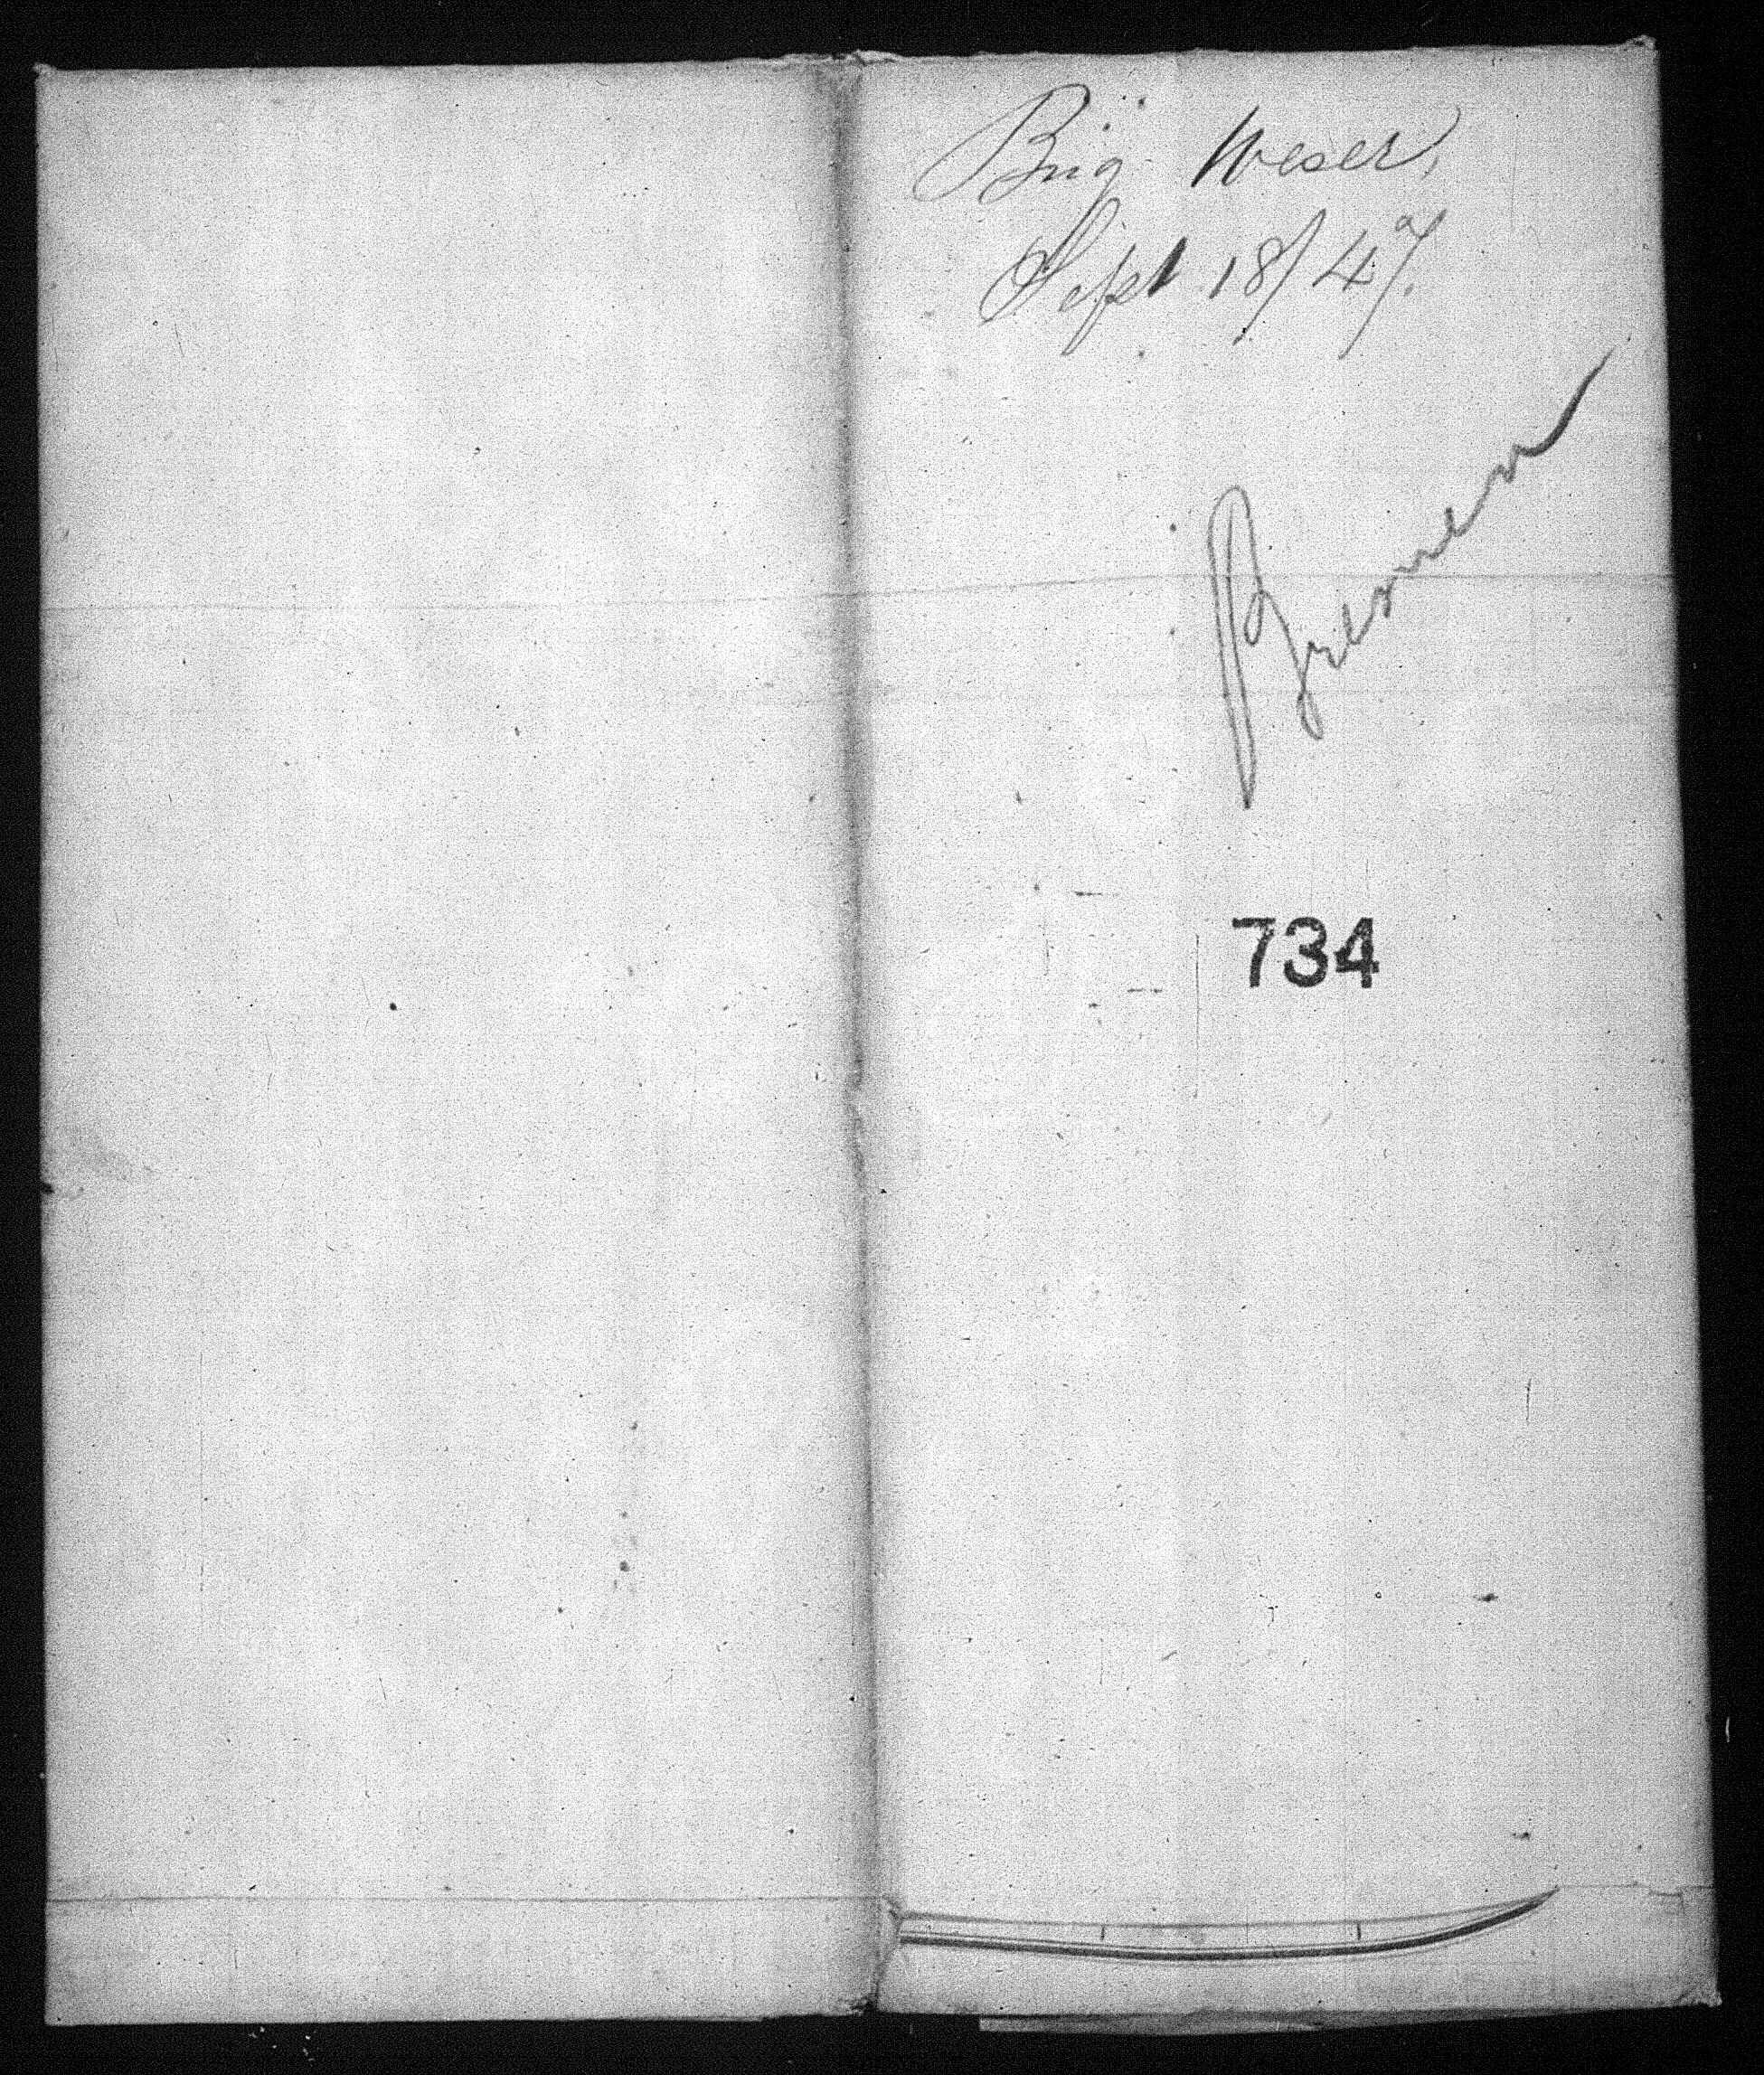 Brig Weser,
Sept 18/47.
Bremen
734